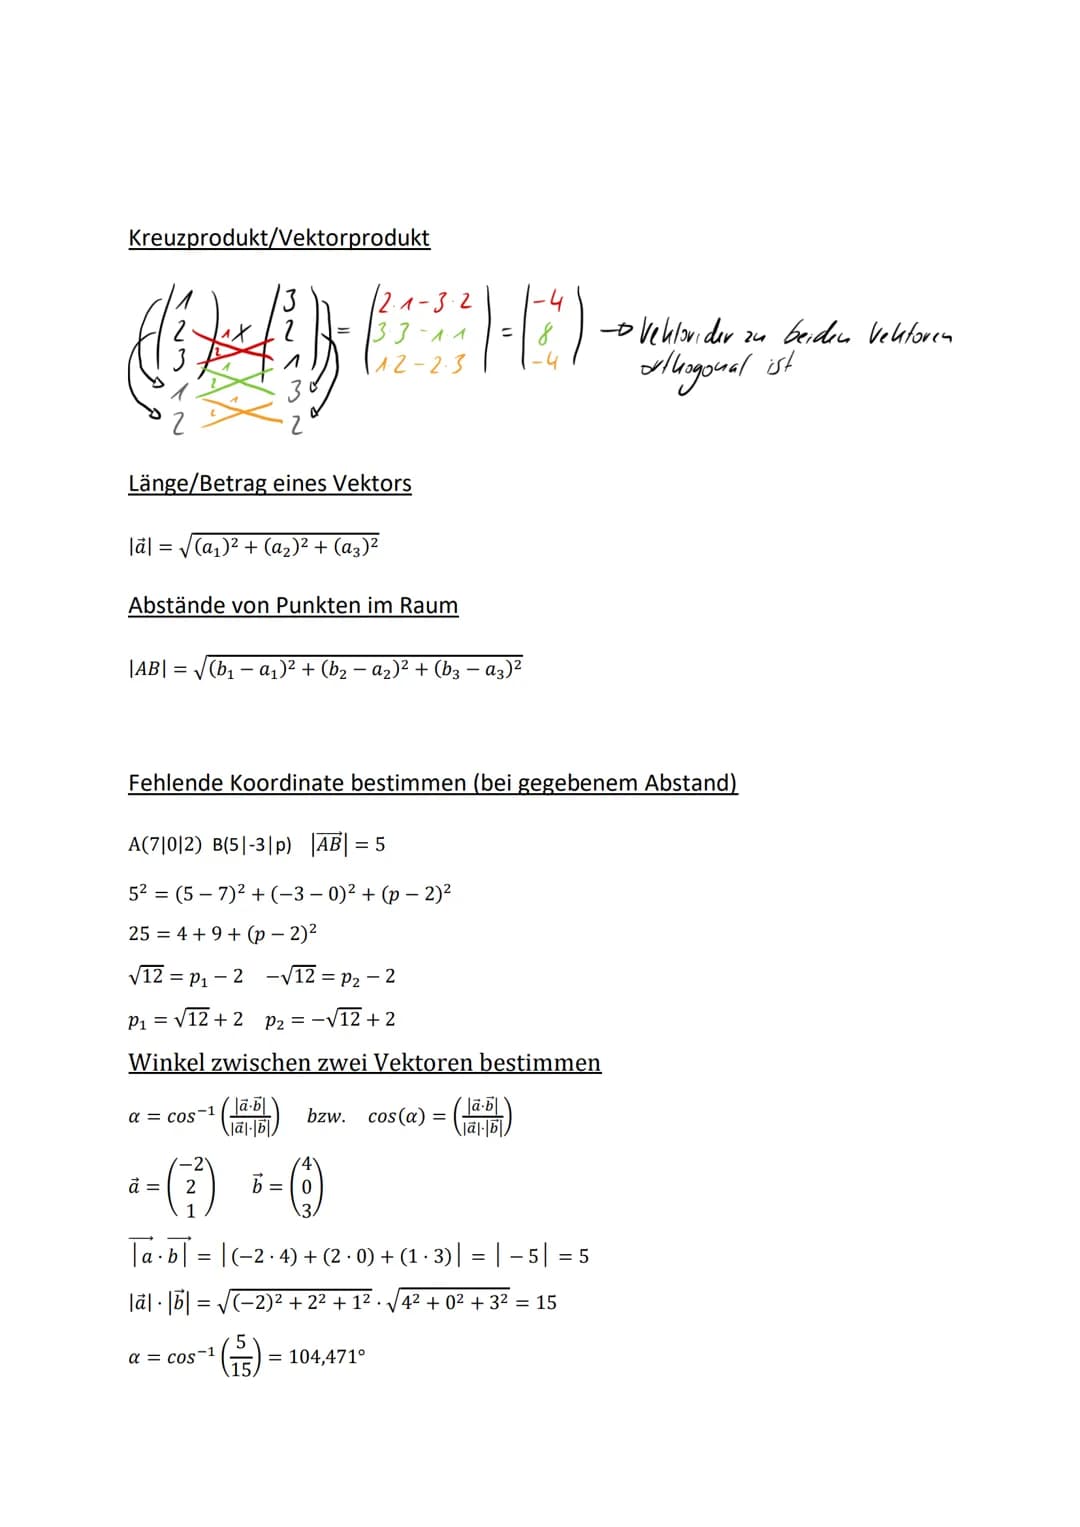 Kreuzprodukt/Vektorprodukt
(1 2 3) x (3 2 1) = (2·1-3·2 3 3-1 1 1 2-2·3) = (-4 8 -4) → Vektor, der zu beiden Vektoren
orthogonal ist
1 3
2 2
Länge/Betrag eines Vektors
|a⃗| = √((a₁)² + (a₂)² + (a₃)²)
Abstände von Punkten im Raum
|AB| = √((b₁ − a₁)² + (b₂ − a₂)² + (b₃ − a₃)²)
Fehlende Koordinate bestimmen (bei gegebenem Abstand)
A(7|0|2) B(5|-3|p) |AB⃗| = 5
5² = (5 − 7)² + (−3 − 0)² + (p − 2)²
25 = 4 + 9 + (p − 2)²
√12 = p₁ − 2 −√12 = p₂ − 2
p₁ = √12 + 2 p₂ = −√12 + 2
Winkel zwischen zwei Vektoren bestimmen
α = cos⁻¹(|a⃗·b⃗| / |a⃗|·|b⃗|) bzw. cos(α) = (|a⃗·b⃗| / |a⃗|·|b⃗|)
a⃗ = (−2 2 1) b⃗ = (4 0 3)
|a⃗ · b⃗| = |(−2 · 4) + (2 · 0) + (1 · 3)| = | − 5| = 5
|a⃗| · |b⃗| = √((−2)² + 2² + 1²) · √(4² + 0² + 3²) = 15
α = cos⁻¹(5/15) = 104,471°